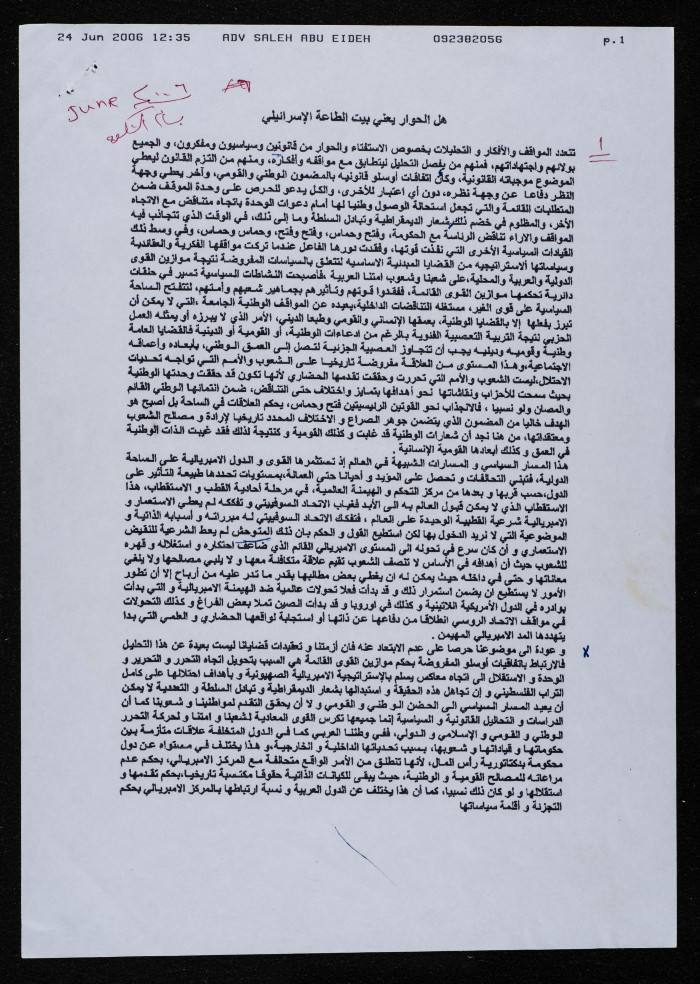 24 Jun 2006 12:35 ADV SALEH ABU EIDEH 092382056 p.1
JUNE
هل الحوار يعني بيت الطاعة الإسرائيلي
1
تتعدد المواقف والأفكار و التحليلات بخصوص الاستفتاء والحوار من قانونين وسياسيون ومفكرون، و الجميع
بولائهم واجتهاداتهم، فمنهم من يفصل التحليل ليتطابق مع مواقفه وأفكاره، ومنهم من التزم القانون ليعطي
الموضوع موجباته القانونية، وكأن اتفاقات أوسلو قانونيه بالمضمون الوطني والقومي، وآخر يعطي وجهة
النظر دفاعا عن وجهة نظره، دون أي اعتبار للأخرى، والكل يدعو للحرص على وحدة الموقف ضمن
المتطلبات القائمة والتي تجعل استحالة الوصول وطنيا لها أمام دعوات الوحدة باتجاه متناقض مع الاتجاه
الأخر، والمظلوم في خضم ذلك شعار الديمقراطية وتبادل السلطة وما إلى ذلك، في الوقت الذي تتجاذب فيه
المواقف والآراء تناقض الرئاسة مع الحكومة، وفتح وحماس، وفتح وفتح، وحماس وحماس، وفي وسط ذلك
القيادات السياسية الأخرى التي نفذت قوتها، وفقدت دورها الفاعل عندما تركت مواقفها الفكرية والعقائدية
وسياساتها ألاستراتيجيه من القضايا المبدئية الاساسيه لتتعلق بالسياسات المفروضة نتيجة موازين القوى
الدولية والعربية والمحلية،على شعبنا وشعوب امتنا العربية ،فأصبحت النشاطات السياسية تسير في حلقات
دائرية تحكمها موازين القوى القائمة، ففقدوا قوتهم وتأثيرهم بجماهير شعبهم وأمتهم، لتنفتح الساحة
السياسية على قوى الغير، مستغله التناقضات الداخلية،بعيده عن المواقف الوطنية الجامعة ،التي لا يمكن أن
تبرز بفعلها إلا بالقضايا الوطنية، بعمقها الإنساني والقومي وطبعا الديني، الأمر الذي لا يبرزه أو يمثله العمل
الحزبي نتيجة التربية التعصبية الفئوية بالرغم من ادعاءات الوطنية، أو القومية أو الدينية فالقضايا العامة
وطنية وقوميه ودينيه يجب أن تتجاوز العصبية الجزئية لتصل إلى العمق الوطني، بأبعاده وأعماقه
الاجتماعية،وهذا المستوى من العلاقة مفروضة تاريخيا على الشعوب والأمم التي تواجه تحديات
الاحتلال،ليست الشعوب والأمم التي تحررت وحققت تقدمها الحضاري لأنها تكون قد حققت وحدتها الوطنية
بحيث سمحت للأحزاب ونقاشاتها نحو أهدافها بتمايز واختلاف حتى التناقض، ضمن انتمائها الوطني القائم
والمصان ولو نسبيا ، فالانجذاب نحو القوتين الرئيسيتين فتح وحماس، يحكم العلاقات في الساحة بل أصبح هو
الهدف خاليا من المضمون الذي يتضمن جوهر الصراع و الاختلاف المحدد تاريخيا لإرادة و مصالح الشعوب
ومعتقداتها، من هنا نجد أن شعارات الوطنية قد غابت و كذلك القومية و كنتيجة لذلك فقد غيبت الذات الوطنية
في العمق و كذلك أبعادها القومية الإنسانية.
هذا المسار السياسي و المسارات الشبيهة في العالم إذ تستثمرها القوى و الدول الامبريالية على الساحة
الدولية، فتبني التحالفات و تحصل على المؤيد و أحيانا حتى العمالة،بمستويات تحددها طبيعة التأثير على
الدول،حسب قربها و بعدها من مركز التحكم و الهيمنة العالمية، في مرحلة أحادية القطب و الاستقطاب، هذا
الاستقطاب الذي لا يمكن قبول العالم به الى الأبد فغياب الاتحاد السوفييتي و تفككه لم يعطي الاستعمار و
الامبريالية شرعية القطبية الوحيدة على العالم ، فتفكك الاتحاد السوفييتي له مبرراته و أسبابه الذاتية و
الموضوعية التي لا نريد الدخول بها لكن استطيع القول و الحكم بان ذلك المتوحش لم يعط الشرعية للنقيض
الاستعماري و أن كان سرع في تحوله الى المستوى الامبريالي القائم الذي ضاعف احتكاره و استغلاله و قهره
للشعوب حيث أن أهدافه في الأساس لا تنصف الشعوب تقيم علاقة متكافئة معها و لا يلبي مصالحها ولا يلغي
معاناتها و حتى في داخله حيث يمكن له ان يغطي بعض مطالبها بقدر ما تدر عليه من أرباح إلا أن تطور
الأمور لا يستطيع ان يضمن استمرار ذلك و قد بدأت فعلا تحولات عالمية ضد الهيمنة الامبريالية و التي بدأت
بوادره في الدول الأمريكية اللاتينية و كذلك في اوروبا و قد بدأت الصين تملأ بعض الفراغ و كذلك التحولات
في مواقف الاتحاد الروسي انطلاقا من دفاعها عن ذاتها أو استجابة لواقعها الحضاري و العلمي التي بدا
يتهددها المد الامبريالي المهيمن.
x
و عودة الى موضوعنا حرصا على عدم الابتعاد عنه فان أزمتنا و تعقيدات قضايانا ليست بعيدة عن هذا التحليل
فالارتباط باتفاقيات أوسلو المفروضة بحكم موازين القوى القائمة هي السبب بتحويل اتجاه التحرر و التحرير و
الوحدة و الاستقلال الى اتجاه معاكس يسلم بالإستراتيجية الامبريالية الصهيونية و بأهداف احتلالها على كامل
التراب الفلسطيني و إن تجاهل هذه الحقيقة و استبدالها بشعار الديمقراطية و تبادل السلطة و التعددية لا يمكن
أن يعيد المسار السياسي الى الحضن الوطني و القومي و لا أن يحقق التقدم لمواطنينا و شعوبنا كما أن
الدراسات و التحاليل القانونية و السياسية إنما جميعها تكرس القوى المعادية لشعبنا و امتنا و لحركة التحرر
الوطني و القومي و الإسلامي و الدولي، ففي وطننا العربي كما في الدول المتخلفة علاقات متأزمة بين
حكوماتها و قياداتها و شعوبها، بسبب تحدياتها الداخلية و الخارجية،و هذا يختلف في مستواه عن دول
محكومة بدكتاتورية رأس المال، لأنها تنطلق من الأمر الواقع متحالفة مع المركز الامبريالي، بحكم عدم
مراعاته للمصالح القومية و الوطنية، حيث يبقى للكيانات الذاتية حقوقا مكتسبة تاريخيا،بحكم تقدمها و
استقلالها و لو كان ذلك نسبيا، كما أن هذا يختلف عن الدول العربية و نسبة ارتباطها بالمركز الامبريالي بحكم
التجزئة و أقلمة سياساتها